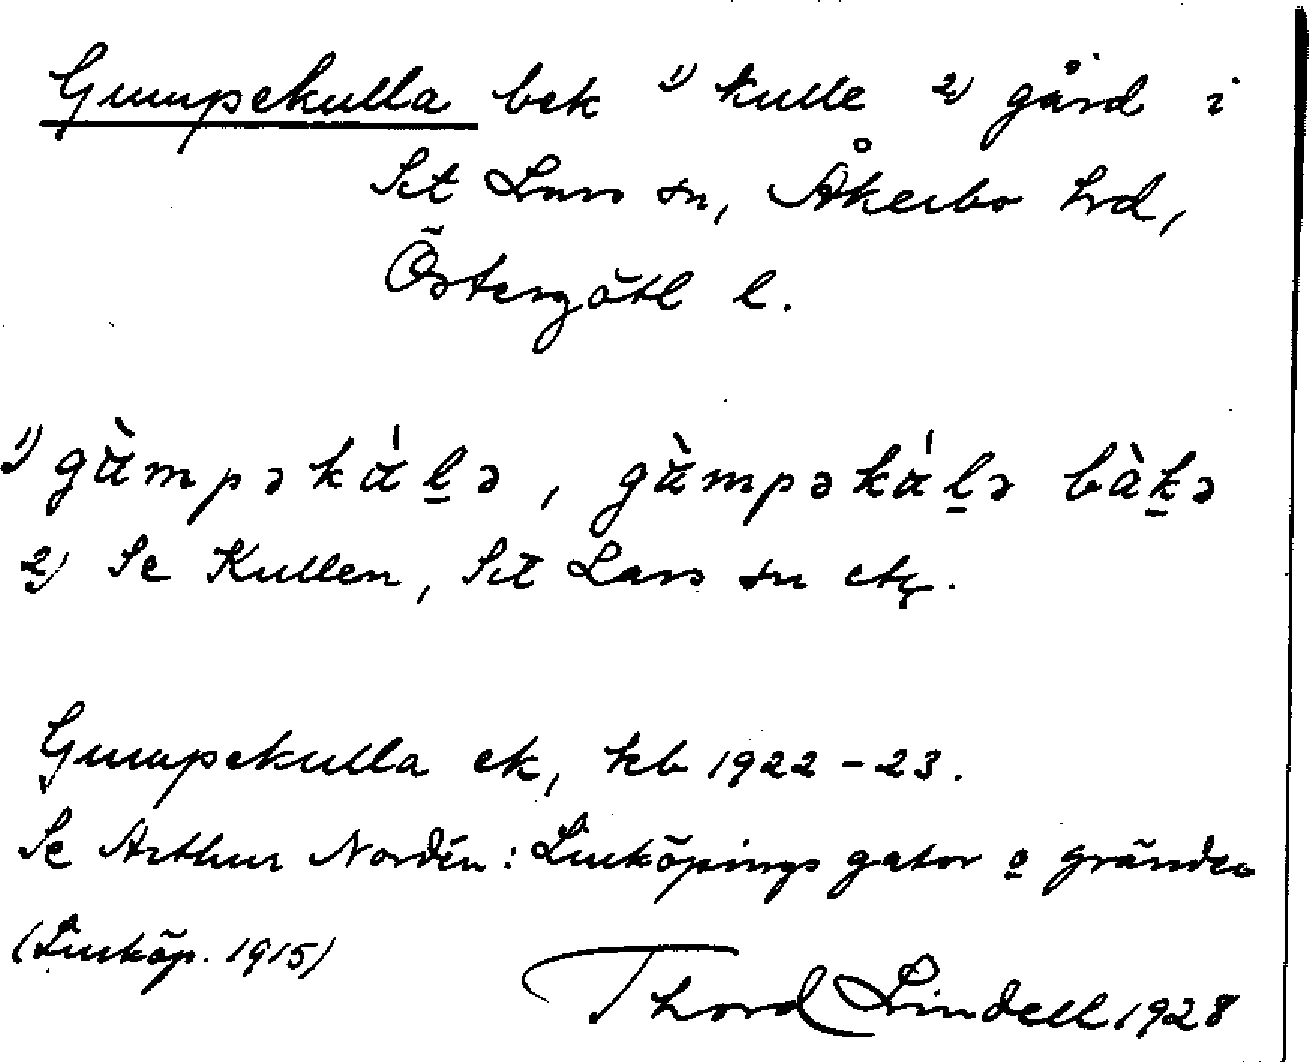 Gumpekulla bek 1) kulle 2) gård i
Sct Lars sn, Åkerbo hrd,
Östergötl l.
1) gɑ̀mpəkɑ́l̠ə, gɑ̀mpəkɑ́l̠ə bàk̠ə
2) Se Kullen, Sct Lars sn etc.
Gumpekulla ek, kb 1922-23.
Se Arthur Nordén: Linköpings gator o gränder
(Linköp. 1915)
Thord Lindell 1928